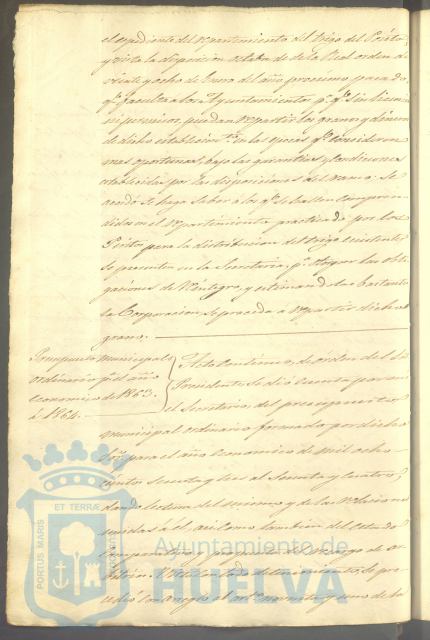 el expediente del repartimiento del trigo del Pósito,
y vista la disposicion octava de la Real orden de
veinte y ocho de Enero del año proccimo pasado
qe. faculta a los Ayuntamientos pa. qe. sin licencia
ni permiso, puedan repartir los granos y dinero
de dicho establecimto. en las epocas qe. consideren
mas oportunas, bajo las garantias y condiciones
establecidas por las disposiciones del ramo: Se
acordó se haga saber a los qe. se hallan compren-
didos en el repartimiento practicado por los
Peritos para la distribucion del trigo existente,
se presenten en la Secretaria, pa. otorgar las obli-
gaciones de reintegro, y estimandolas bastante
la Corporacion, se proceda a repartir dicho
grano.
Presupuesto municipal
ordinario pa. el año
economico de 1863.
á 1864.
Acto continuo, de orden del Sor.
Presidente se dió cuenta por mi
el Secretario del presupuesto
municipal ordinario formado por dicho
Sor. para el año economico de mil ocho-
cientos sesenta y tres al sesenta y cuatro,
dando lectura del mismo y de las relaciones
unidas a él, asi como tambien del estado
comparativo y
de
con arreglo al artº. noventa y uno de la
PORTUS MARIS ET TERRÆ CUSTODIA
Ayuntamiento de
HUELVA